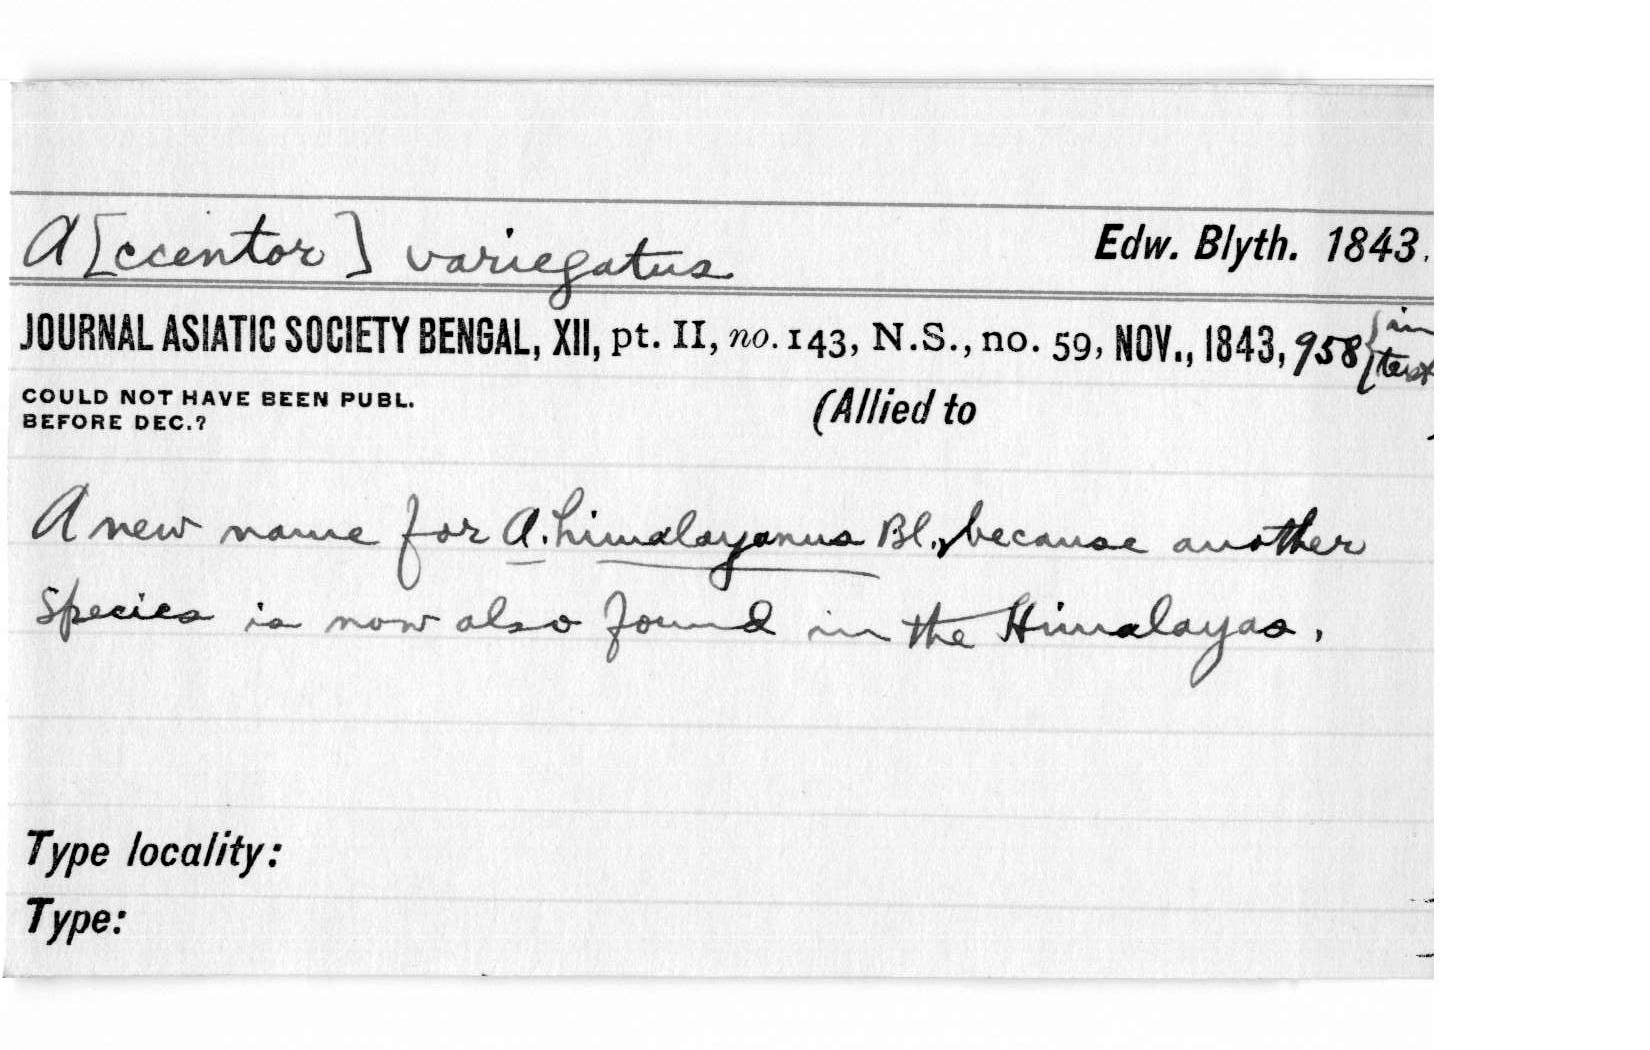 A[ccentor] variegatus Edw. Blyth. 1843.
JOURNAL ASIATIC SOCIETY BENGAL, XII, pt. II, no. 143, N.S., no. 59, NOV., 1843, 958 {in text
COULD NOT HAVE BEEN PUBL.
BEFORE DEC.?
(Allied to )
A new name for A. himalayanus Bl., because another
species is now also found in the Himalayas.
Type locality:
Type: